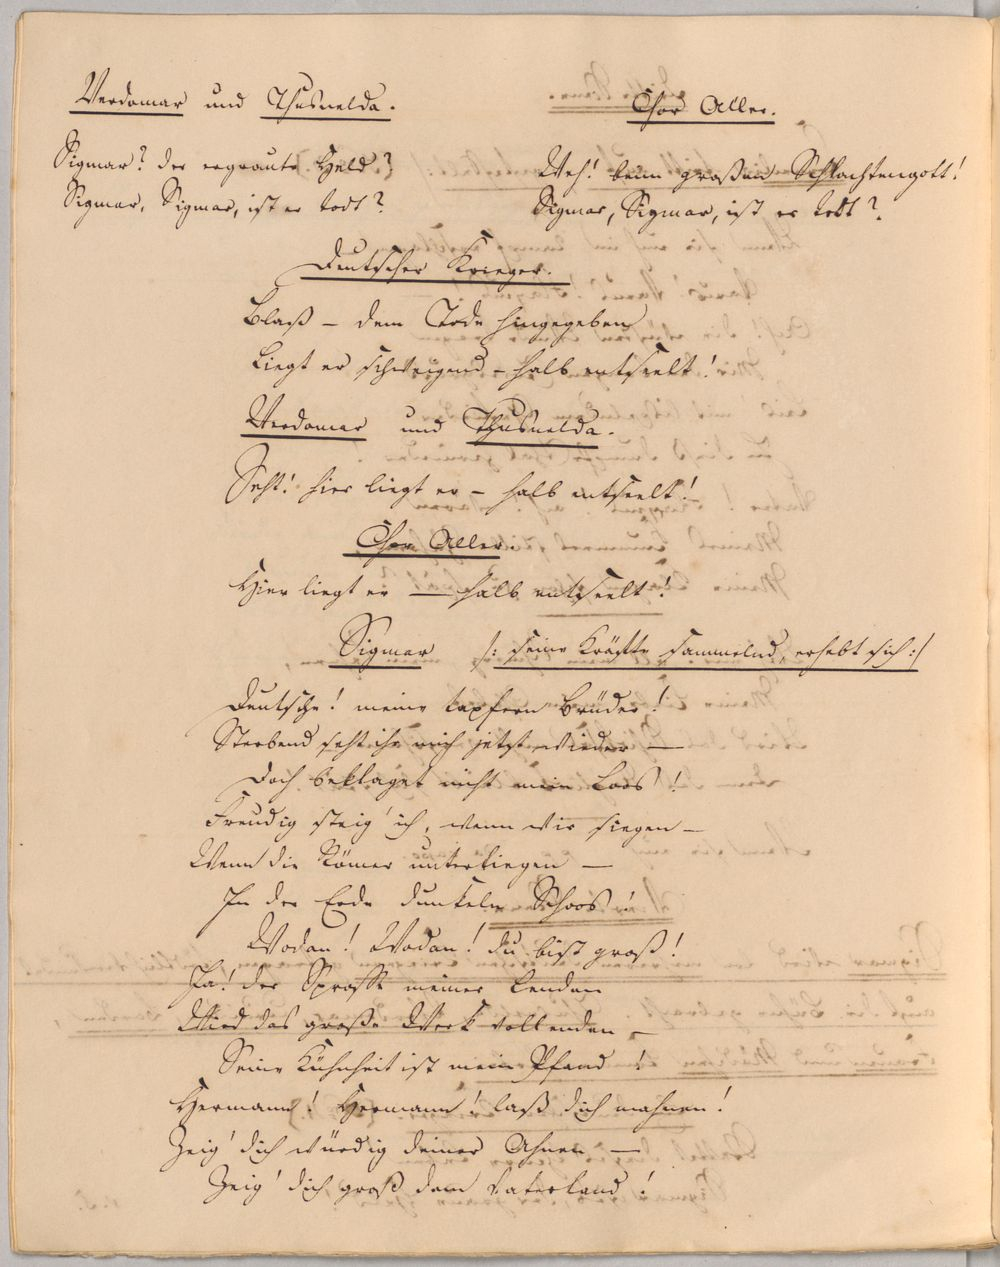 Werdomar und Thusnelda.
Sigmar? der ergraute Held?
Sigmar, Sigmar, ist er todt?
Chor Aller.
Weh! beim großen Schlachtengott!
Sigmar, Sigmar, ist er todt?
Deutscher Krieger.
Blaß – dem Tode hingegeben
Liegt er schweigend – halb entseelt!
Werdomar und Thusnelda.
Seht! hier liegt er – halb entseelt!
Chor Aller.
Hier liegt er — halb entseelt!
Sigmar /: seine Kräfte sammelnd, erhebt sich :/
Deutsche! meine tapfern Brüder!
Sterbend seht ihr mich jetzt wieder —
Doch beklaget nicht mein Loos!
Freudig steig' ich, wenn wir siegen –
Wenn die Römer unterliegen —
In der Erde dunkeln Schoos!
Wodan! Wodan! du bist groß!
Ja! der Sprosse meiner Lenden
Wird das große Werk vollenden –
Seine Kühnheit ist mein Pfand!
Hermann! Hermann! laß dich mahnen!
Zeig' dich würdig deiner Ahnen —
Zeig' dich groß dem Vaterland!